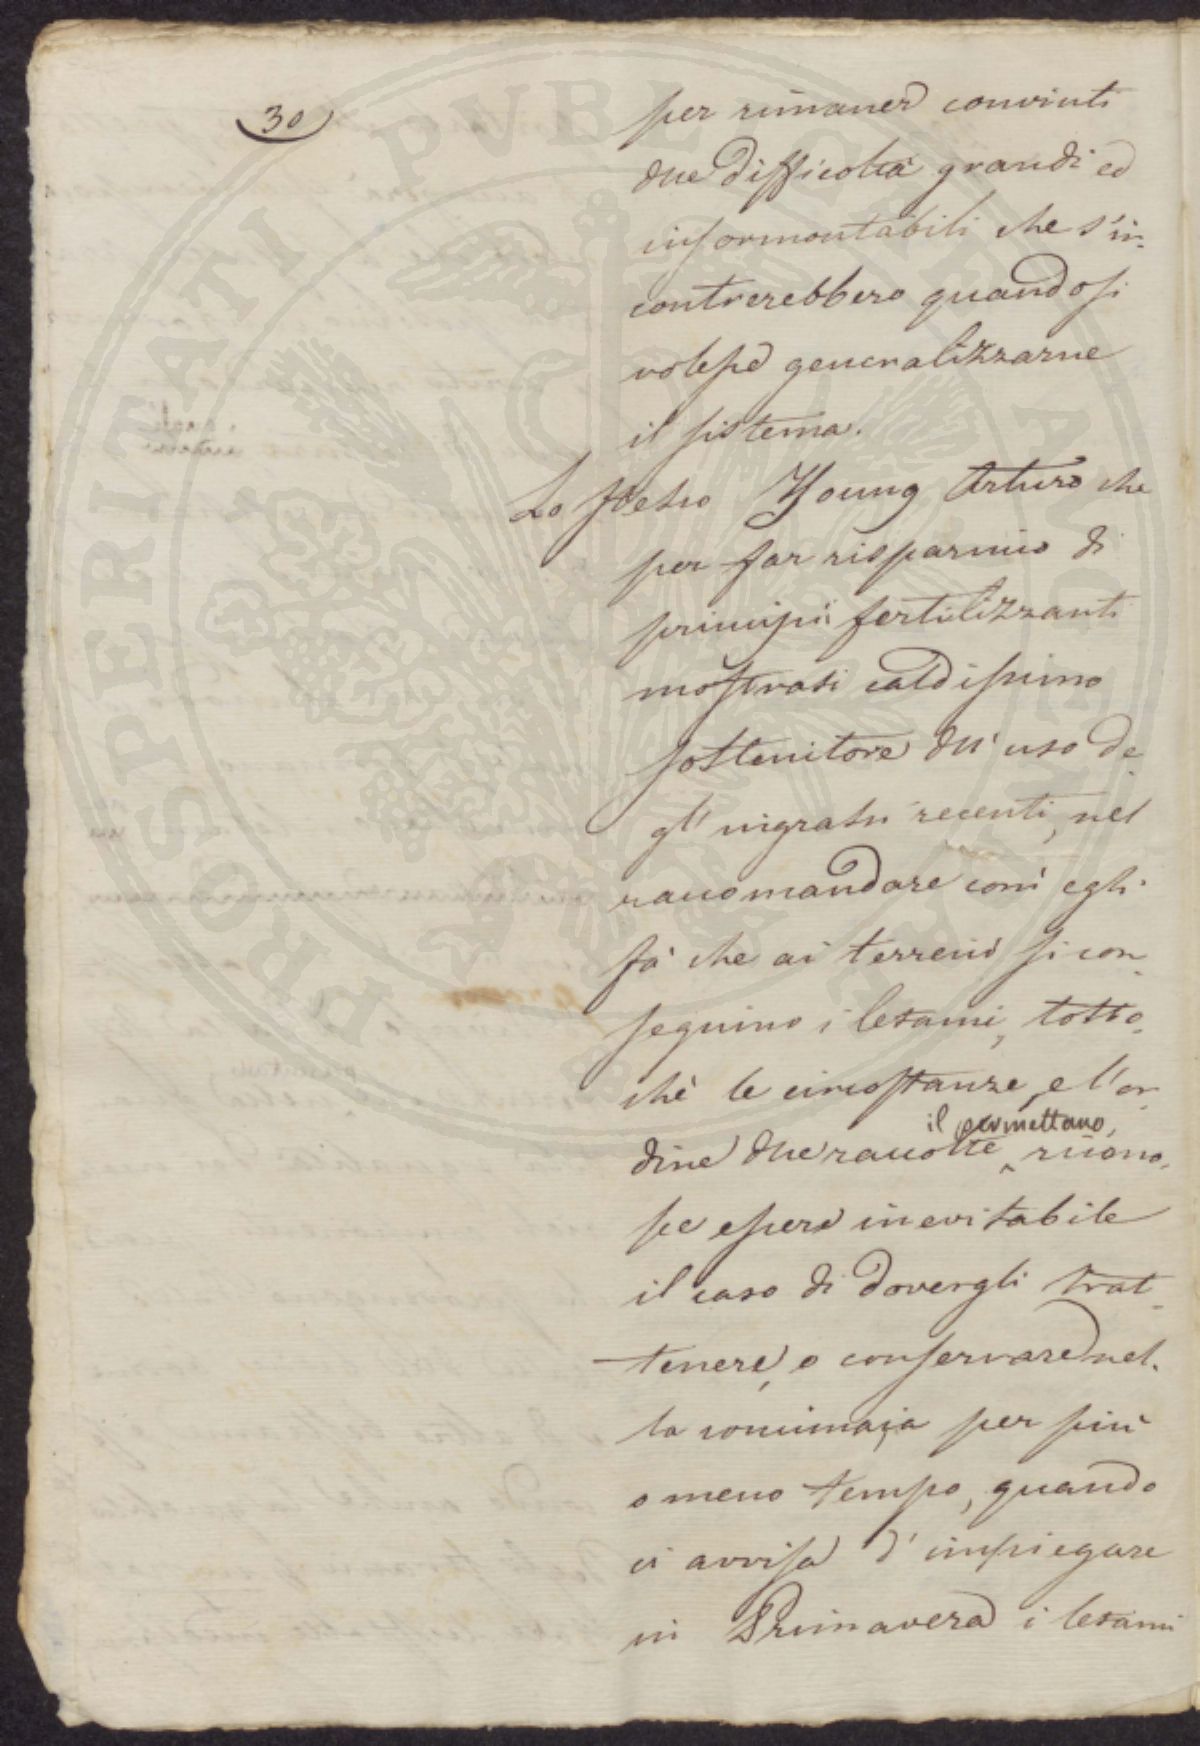 30
per rimaner convinti
delle difficoltà grandi ed
insormontabili che s'in-
contrerebbero quando si
volesse generalizzarne
il sistema.
Lo stesso Young Arturo che
per far risparmio di
principii fertilizzanti
mostrasi caldissimo
sostenitore dell'uso de-
gl'ingrassi recenti, nel
raccomandare com'egli
fà che ai terreni si con-
seguino i letami, totto-
chè le circostanze, e l'or-
dine delle raccolte il permettano, ricono-
sce essere inevitabile
il caso di dovergli trat-
tenere, o conservare nel-
la concimaja per più
o meno tempo, quando
ci avvisa d'impiegare
in Primavera i letami
PROSPERITATI PVBLICAE AVGENDAE